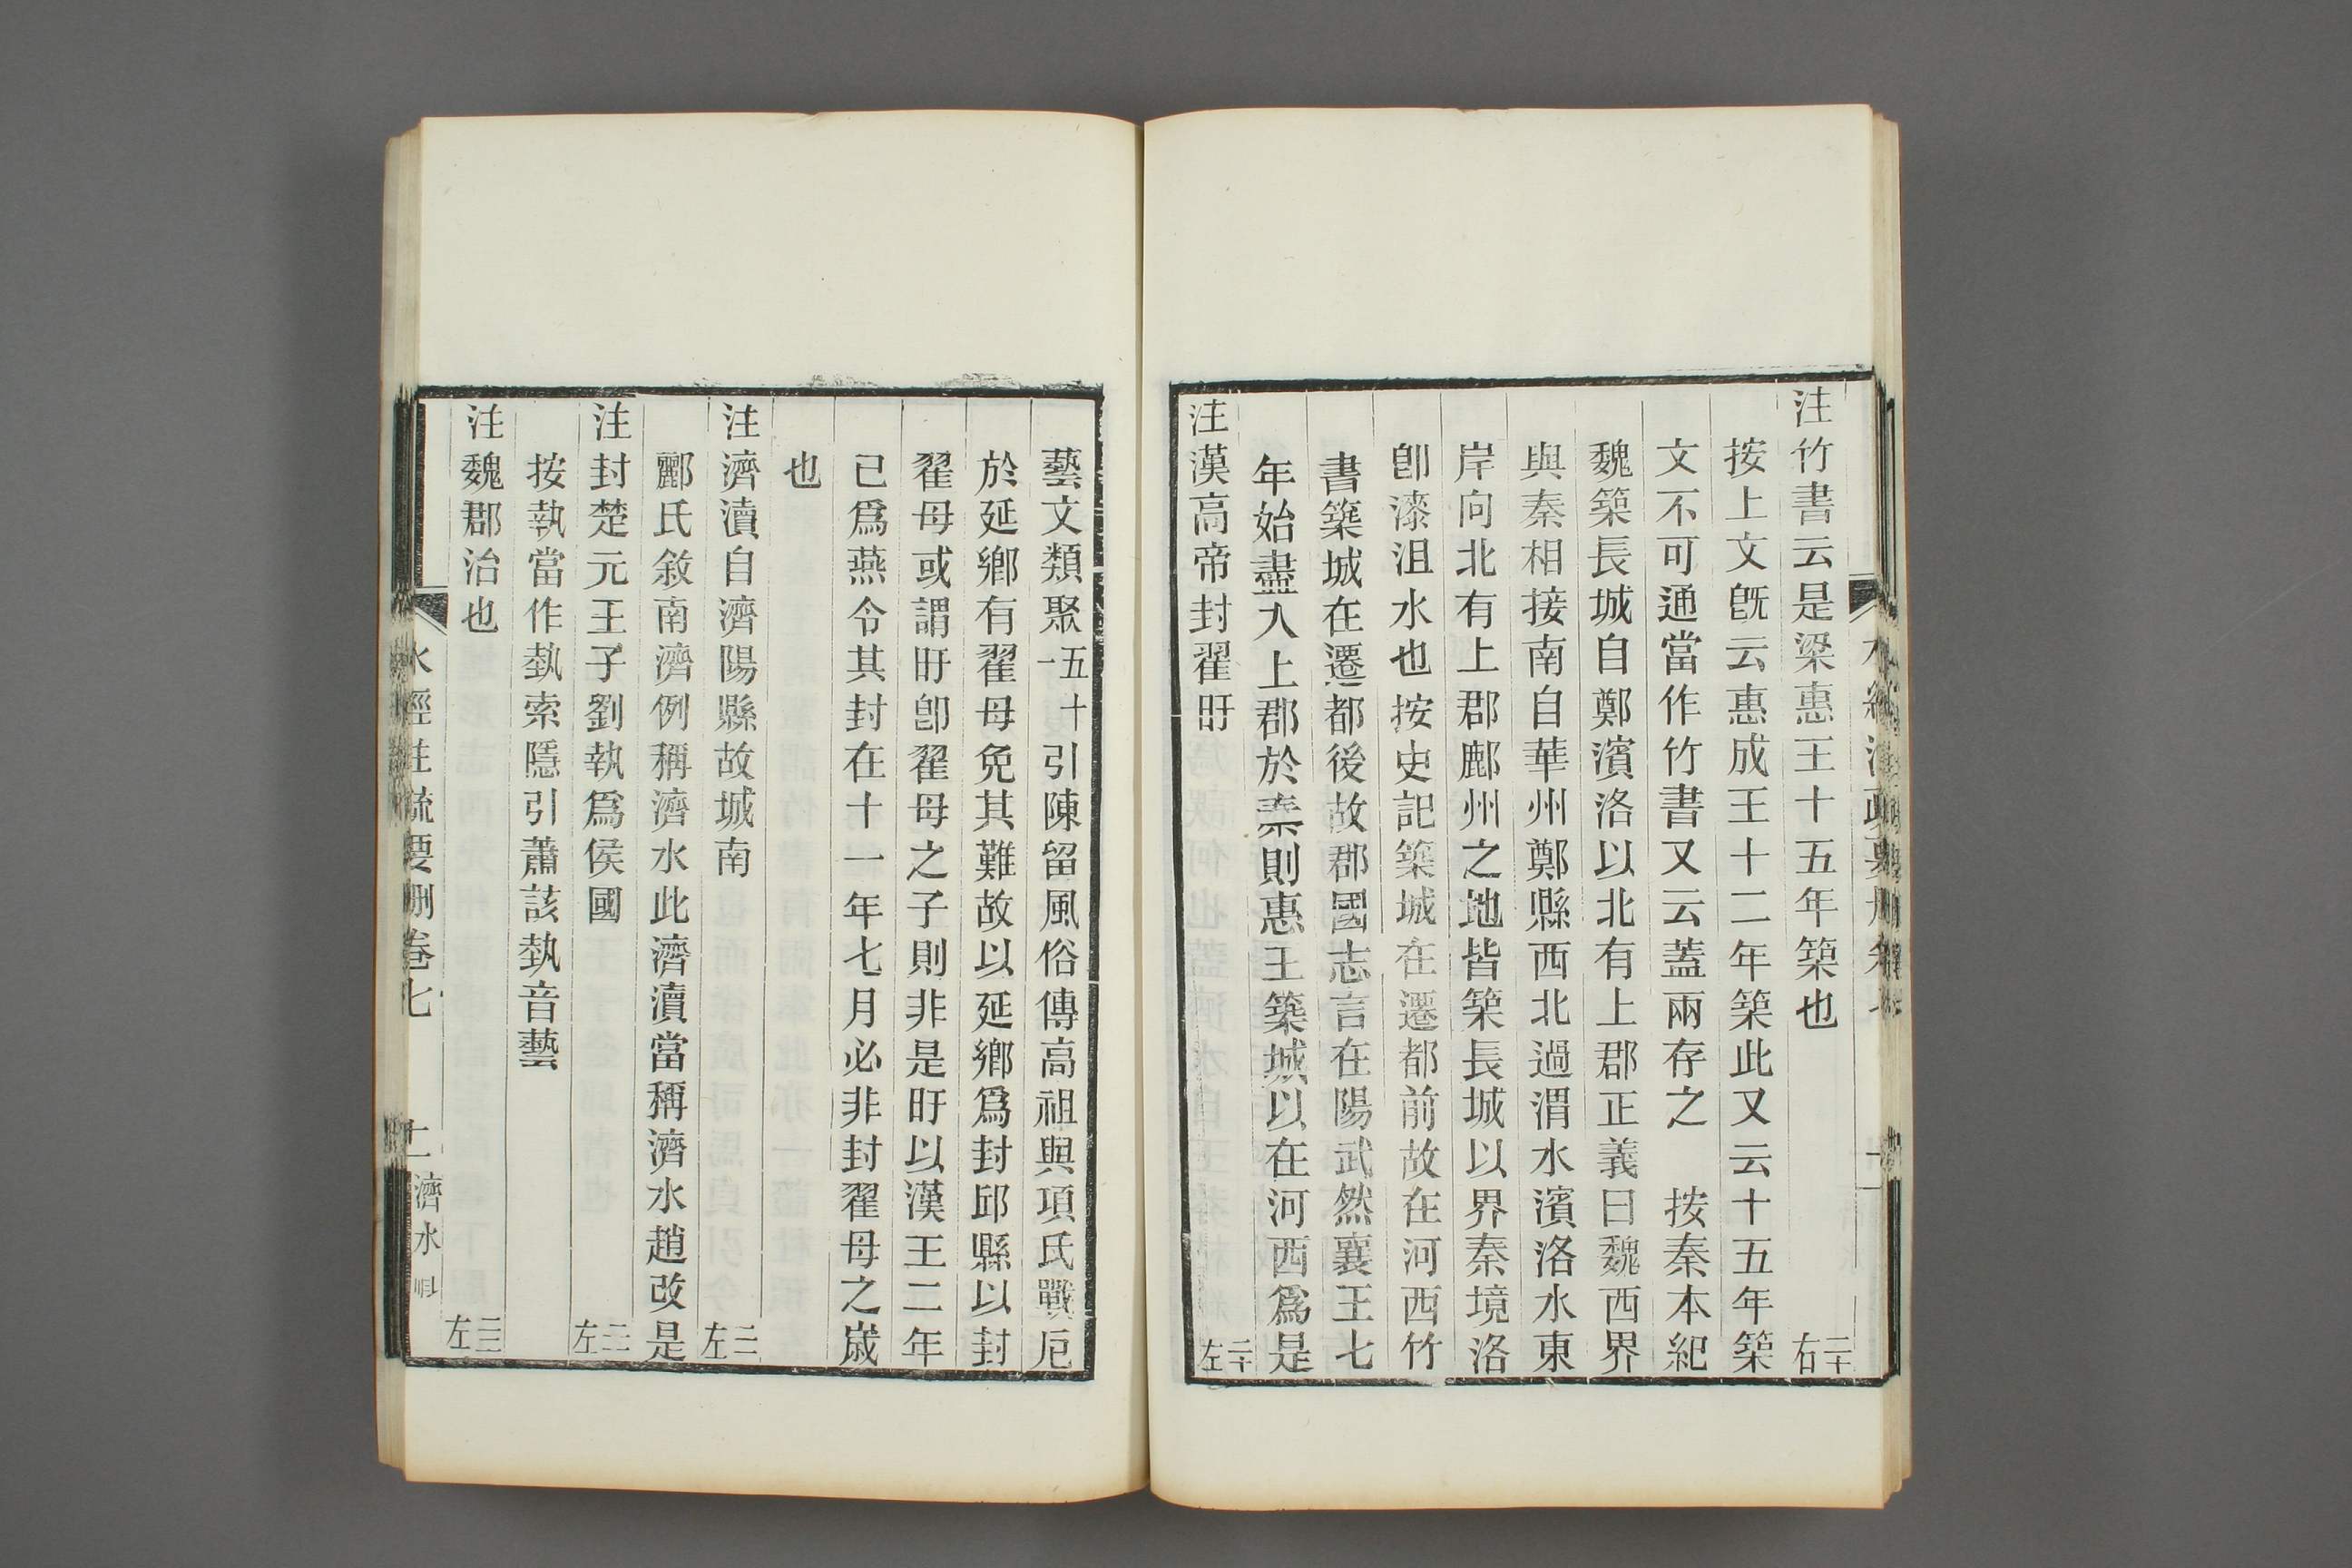 注竹書云是梁惠王十五年築也 二十右
按上文旣云惠成王十二年築此又云十五年築
文不可通當作竹書又云蓋兩存之　按秦本紀
魏築長城自鄭濱洛以北有上郡正義曰魏西界
與秦相接南自華州鄭縣西北過渭水濱洛水東
岸向北有上郡鄜州之地皆築長城以界秦境洛
卽漆沮水也按史記築城在遷都前故在河西竹
書築城在遷都後故郡國志言在陽武然襄王七
年始盡入上郡於秦則惠王築城以在河西爲是
注漢高帝封翟盱 二十左
藝文類聚五十一引陳留風俗傳高祖與項氏戰厄
於延鄉有翟母免其難故以延鄉爲封邱縣以封
翟母或謂盱卽翟母之子則非是盱以漢王二年
已爲燕令其封在十一年七月必非封翟母之歲
也
注濟瀆自濟陽縣故城南 二一左
酈氏敘南濟例稱濟水此濟瀆當稱濟水趙改是
注封楚元王子劉執爲侯國 二二左
按執當作埶索隱引蕭該埶音藝
注魏郡治也 二三左
水經注疏要刪卷七 二 濟水